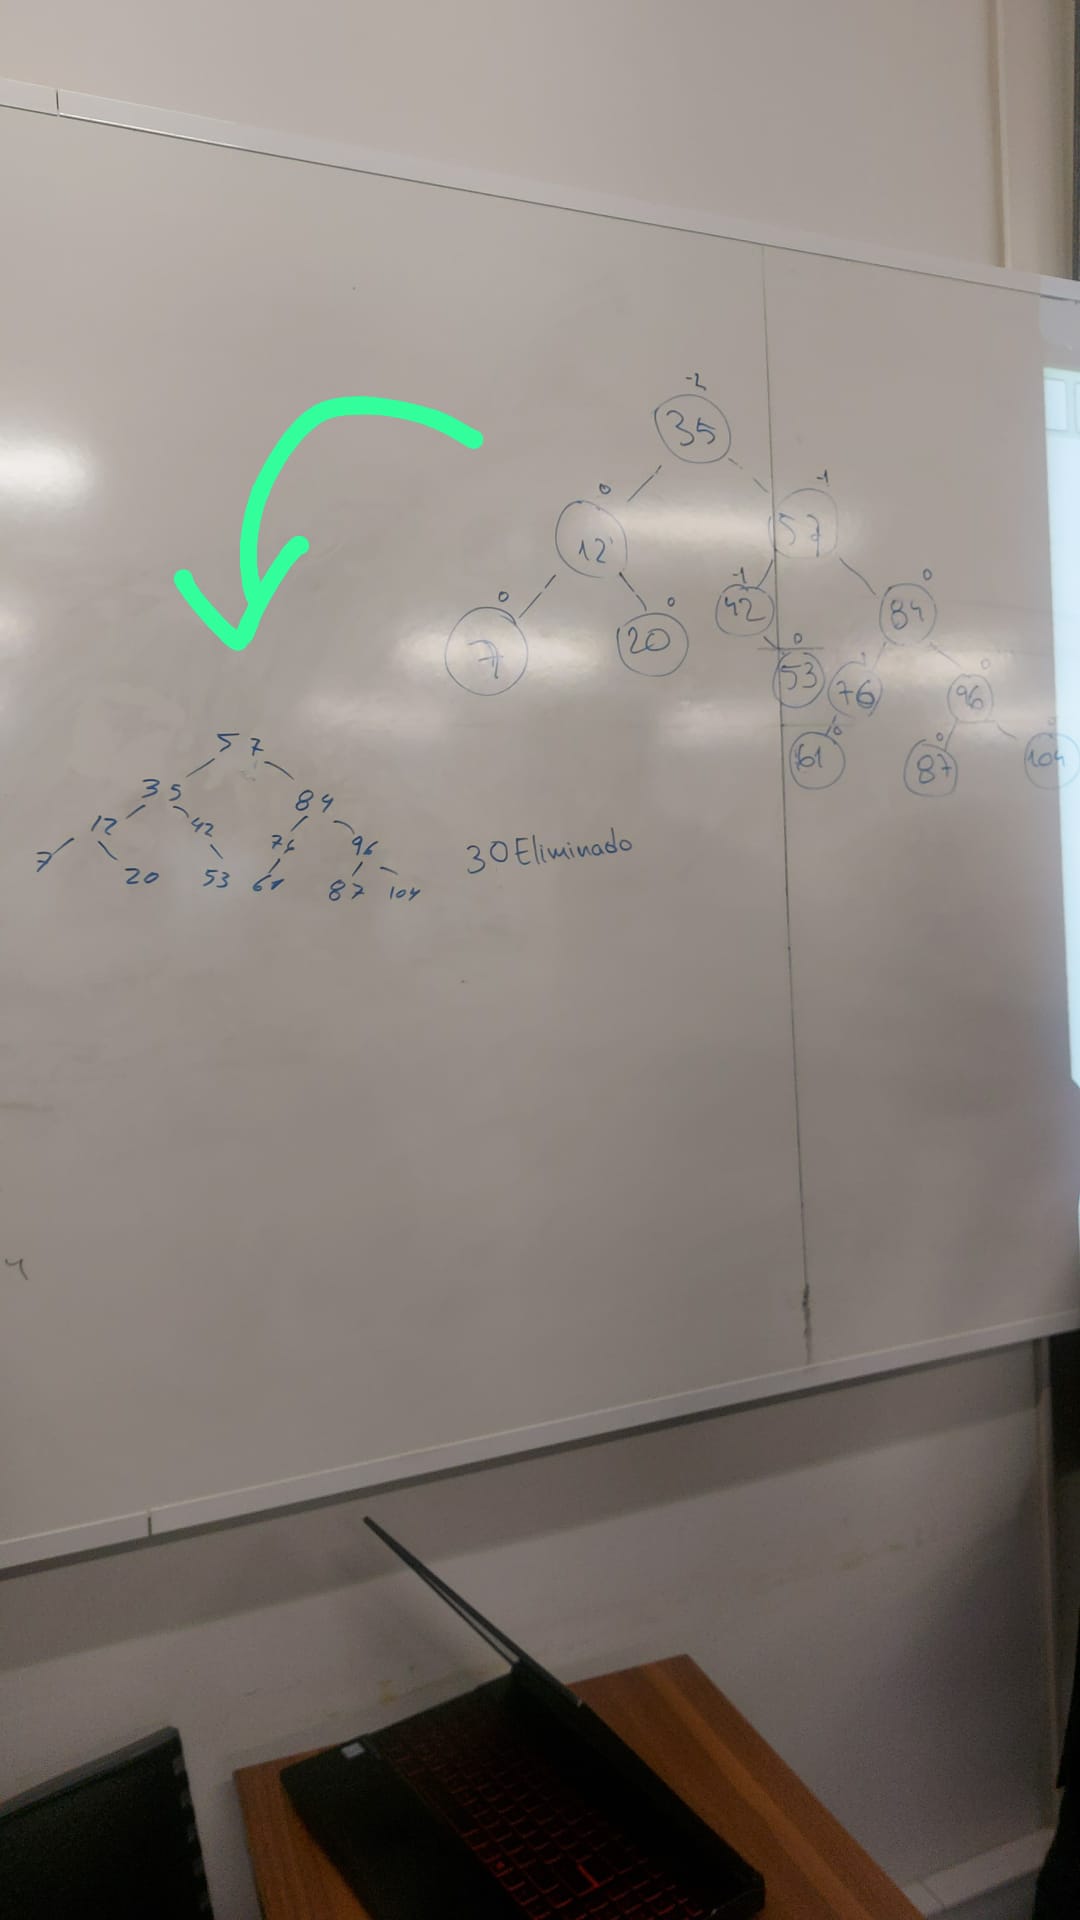 -2
35
0
12
-1
57
0
7
0
20
-1
42
0
84
0
53
1
76
0
96
0
61
0
87
0
104
57
35
84
12
42
76
96
7
20
53
61
87
104
30 Eliminado